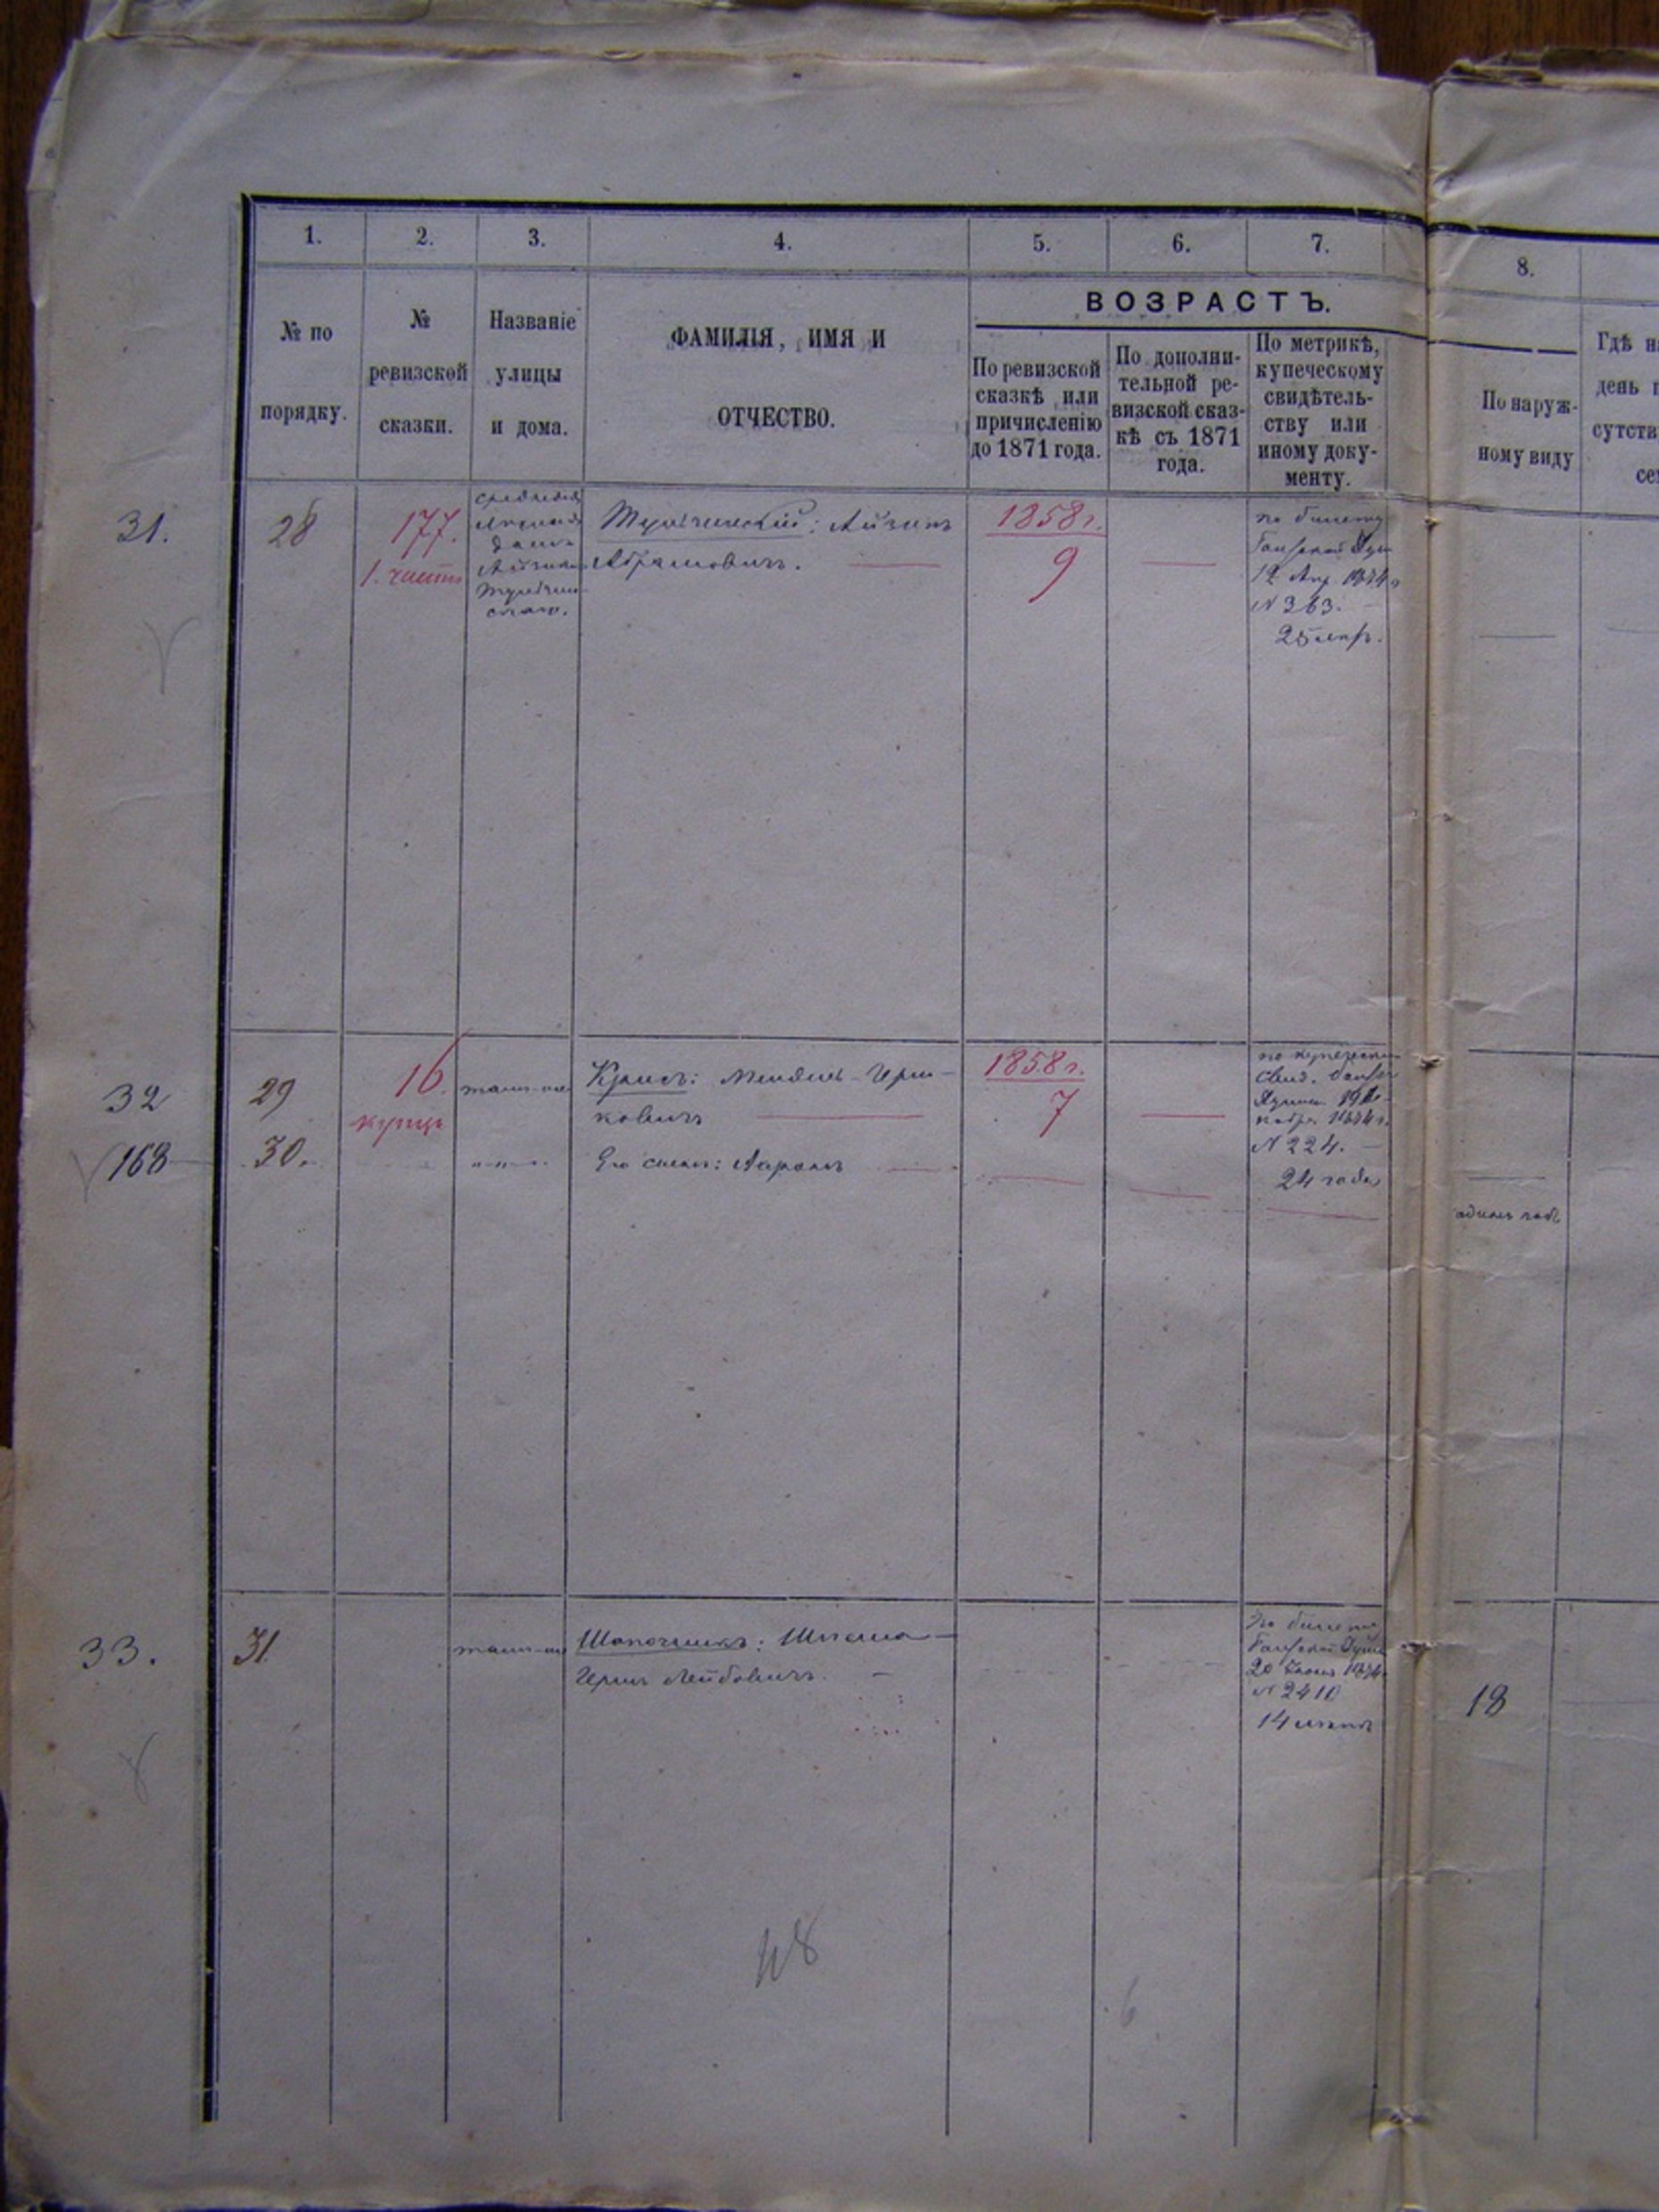 1. 2. 3. 4. 5. 6. 7. 8.
ВОЗРАСТЪ.
№ по
порядку.
№
ревизской
сказки.
Названіе
улицы
и дома.
ФАМИЛІЯ, ИМЯ И
ОТЧЕСТВО.
По ревизской
сказкѣ или
причисленію
до 1871 года.
По дополни-
тельной ре-
визской сказ-
кѣ съ 1871
года.
По метрикѣ,
купеческому
свидѣтель-
ству или
иному доку-
менту.
По наруж-
ному виду
Гдѣ н
день п
сутств
се
31.
28
177.
1. часть
домъ
Айзикъ
Абрамовичъ.
1858 г.
9
по билету
12 Апр. 1874 г
№ 363.
25 лѣтъ.
32
29
16
купцы
тамъ-же
Крисъ: Мендель Герш-
ковичъ
1858 г.
7
по купеческ
Свид.
№ 224.
24 года
168
30.
Его сынъ: Ааронъ
одинъ годъ
33.
31.
тамъ-же
Шапочникъ: Шлема
Герш Лейбовичъ.
По билету
20 1874
№ 2410
14
18
48
6